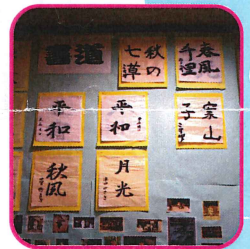 書道
秋の
七草
春風
千里
平和
平和
家山
子
秋風
月光